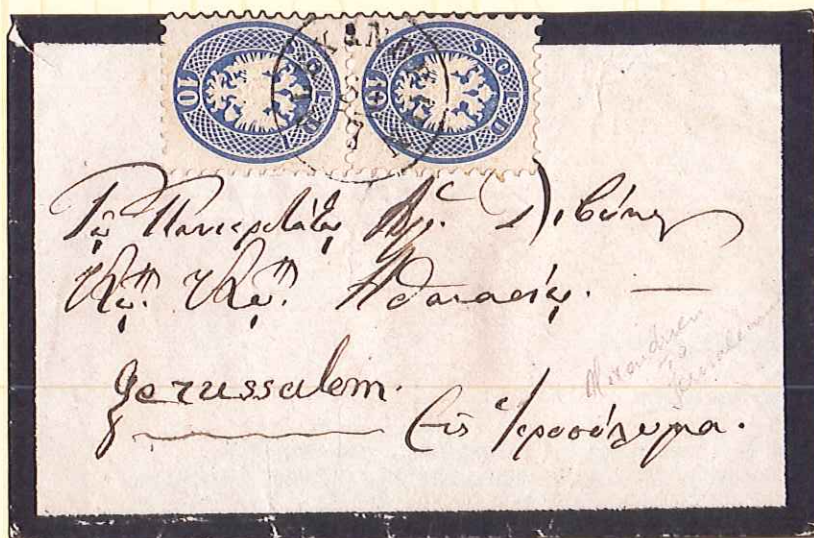 10 SOLDI 10 SOLDI
Τῷ Πανιερωτάτῳ Ἁγ. Λιβύης
Κῷ. Κῷ. Ἀθανασίῳ. —
Jerussalem.
Εἰς Ἱεροσόλυμα.
to
Jerusalem